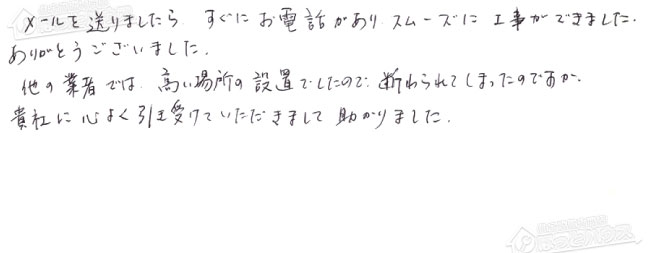 メールを送りましたら、すぐにお電話があり、スムーズに工事ができました。
ありがとうございました。
他の業者では、高い場所の設置でしたので、断わられてしまったのですが、
貴社に心よく引き受けていただきまして助かりました。